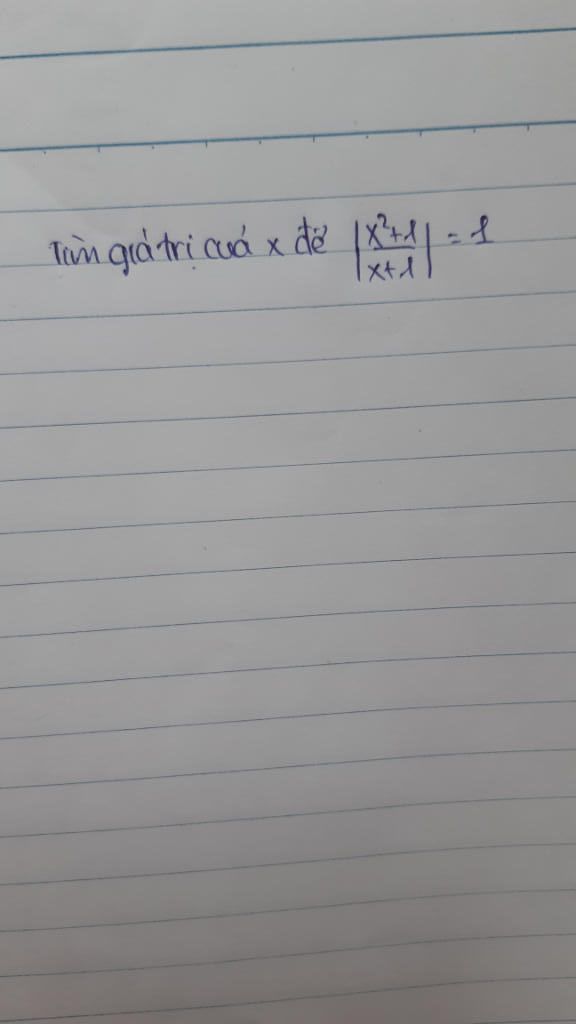 Tìm giá trị cuả x để |x²+1/x+1| = 1